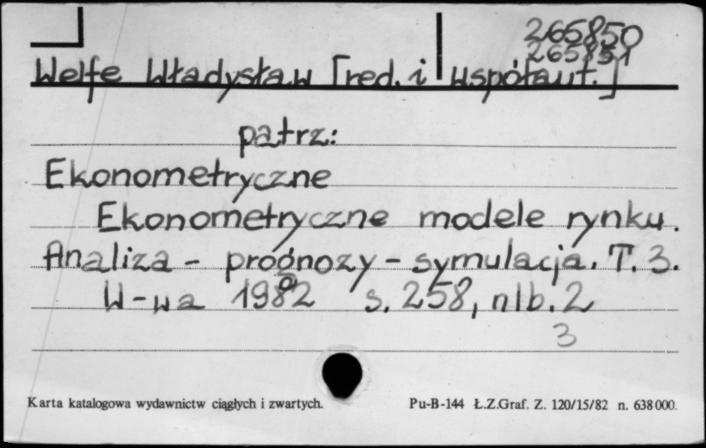 265850
265851
Welfe Władysław [red. i współaut.]
patrz:
Ekonometryczne
Ekonometryczne modele rynku.
Analiza - prognozy - symulacja. T. 3.
W-wa 1982 s. 258, nlb. 2
3
Karta katalogowa wydawnictw ciągłych i zwartych. Pu-B-144 Ł.Z.Graf. Z. 120/15/82 n. 638000.